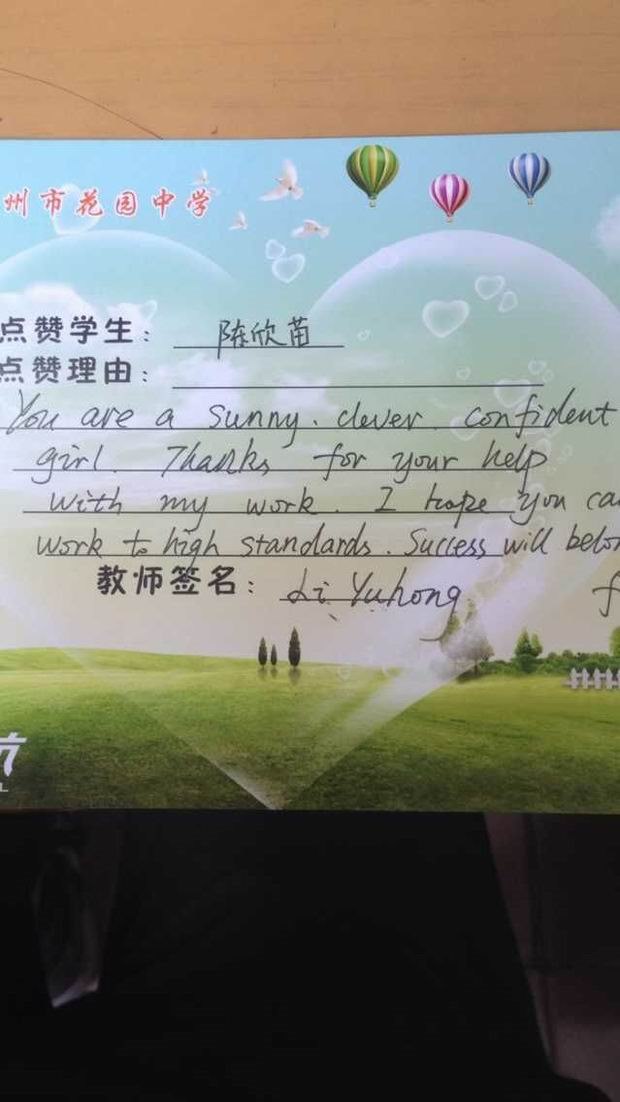 州市花园中学
点赞学生： 陈欣苗
点赞理由：
You are a sunny. clever. confident
girl. Thanks for your help
with my work. I hope you
work to high standards. Success will
教师签名： Li Yuhong